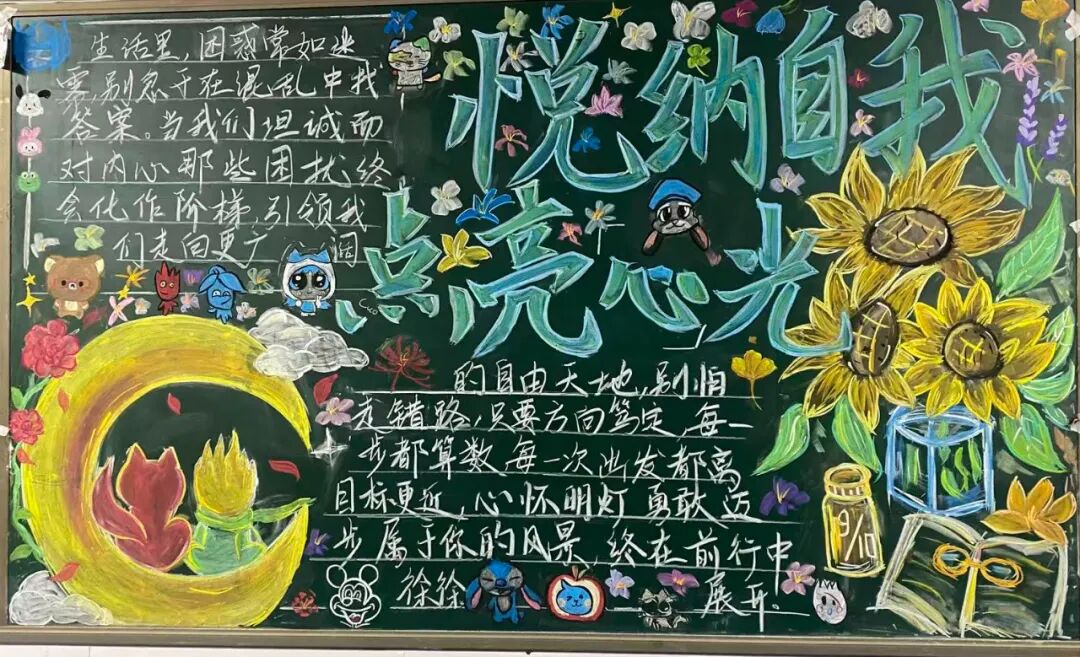 悦纳自我
点亮心光
生活里,困惑常如迷
雾,别急于在混乱中找
答案。当我们坦诚面
对内心那些困扰终
会化作阶梯,引领我
们走向更广阔
的自由天地,别怕
走错路,只要方向笃定,每一
步都算数,每一次出发都离
目标更近,心怀明灯勇敢迈
步属于你的风景,终在前行中
徐徐展开。
9/10